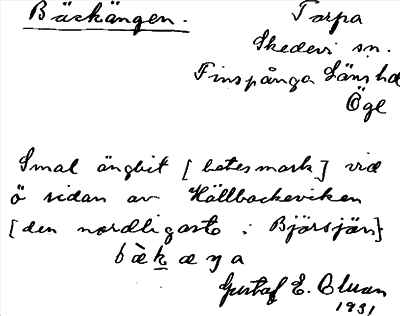 Bäckängen. Torpa
Skedevi sn.
Finspånga Länshd
Ögl
Smal ängbit [betesmark] vid
ö sidan av Hällbackeviken
[den nordligaste i Björsjön]
Gustaf E.
1931